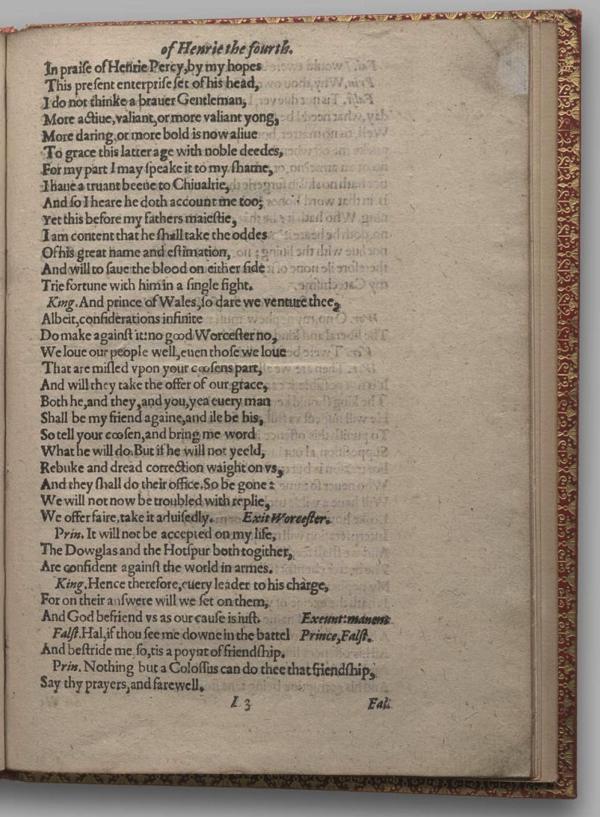 of Henrie the fourth.
In praise of Henrie Percy, by my hopes
This present enterprise set of his head,
I do not thinke a brauer Gentleman,
More actiue, valiant, or more valiant yong,
More daring, or more bold is now aliue
To grace this latter age with noble deedes,
For my part I may speake it to my shame,
I haue a truant beene to Chiualrie,
And so I heare he doth account me too;
Yet this before my fathers maiestie,
I am content that he shall take the oddes
Of his great name and estimation,
And will to saue the blood on either side
Trie fortune with him in a single fight.
King. And prince of Wales, so dare we venture thee,
Albeit, considerations infinite
Do make against it: no good Worcester no,
We loue our people well, euen those we loue
That are misled vpon your coosens part,
And will they take the offer of our grace,
Both he, and they, and you, yea euery man
Shall be my friend againe, and ile be his,
So tell your coosen, and bring me word
What he will do. But if he will not yeeld,
Rebuke and dread correction waight on vs,
And they shall do their office. So be gone:
We will not now be troubled with replie,
We offer faire, take it aduisedly. Exit Worcester.
Prin. It will not be accepted on my life,
The Dowglas and the Hotspur both togither,
Are confident against the world in armes.
King. Hence therefore, euery leader to his charge,
For on their answere will we set on them,
And God befriend vs as our cause is iust. Exeunt: manent
Falst. Hal, if thou see me downe in the battel Prince, Falst.
And bestride me so, tis a poynt of friendship.
Prin. Nothing but a Colossus can do thee that friendship,
Say thy prayers, and farewell.
I. 3 Fal.